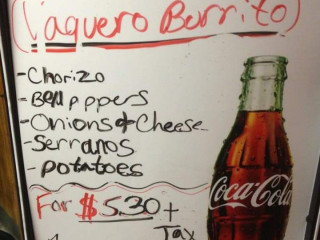 (Vaquero Burrito)
-Chorizo
-Bell peppers
-Onions & Cheese
-Serranos
-potatoes
For $5.30 +
Tax
Coca-Cola